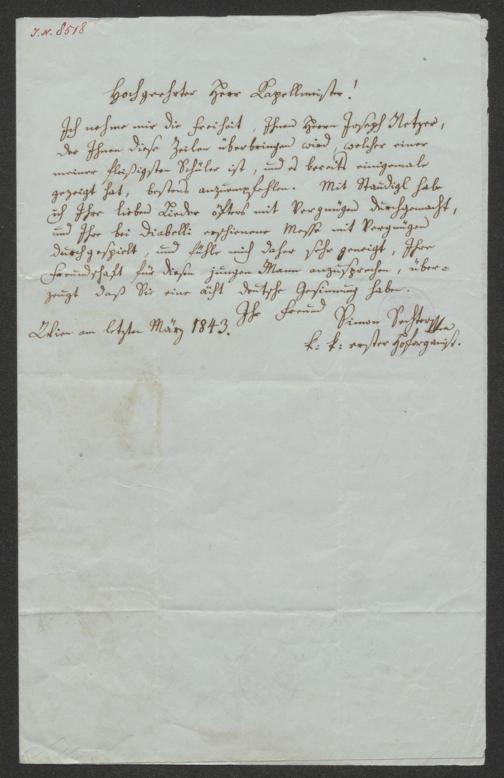 I. N. 8518
Hochgeehrter Herr Kapellmeister!
Ich nehme mir die Freiheit, Ihnen Herrn Joseph Netzer,
der Ihnen diese Zeilen überbringen wird, welcher einer
meiner fleißigsten Schüler ist, und es bereits einigemale
gezeigt hat, bestens anzuempfehlen. Mit Staudigl habe
ich Ihre lieben Lieder öfters mit Vergnügen durchgemacht,
und Ihre bei Diabelli erschienene Messe mit Vergnügen
durchgespielt, und fühle mich daher sehr geneigt, Ihre
Freundschaft für diesen jungen Mann anzusprechen, über-
zeugt daß Sie eine ächt deutsche Gesinnung haben.
Ihr Freund Simon Sechter
Wien am letzten März 1843.
k: k: erster Hoforganist.